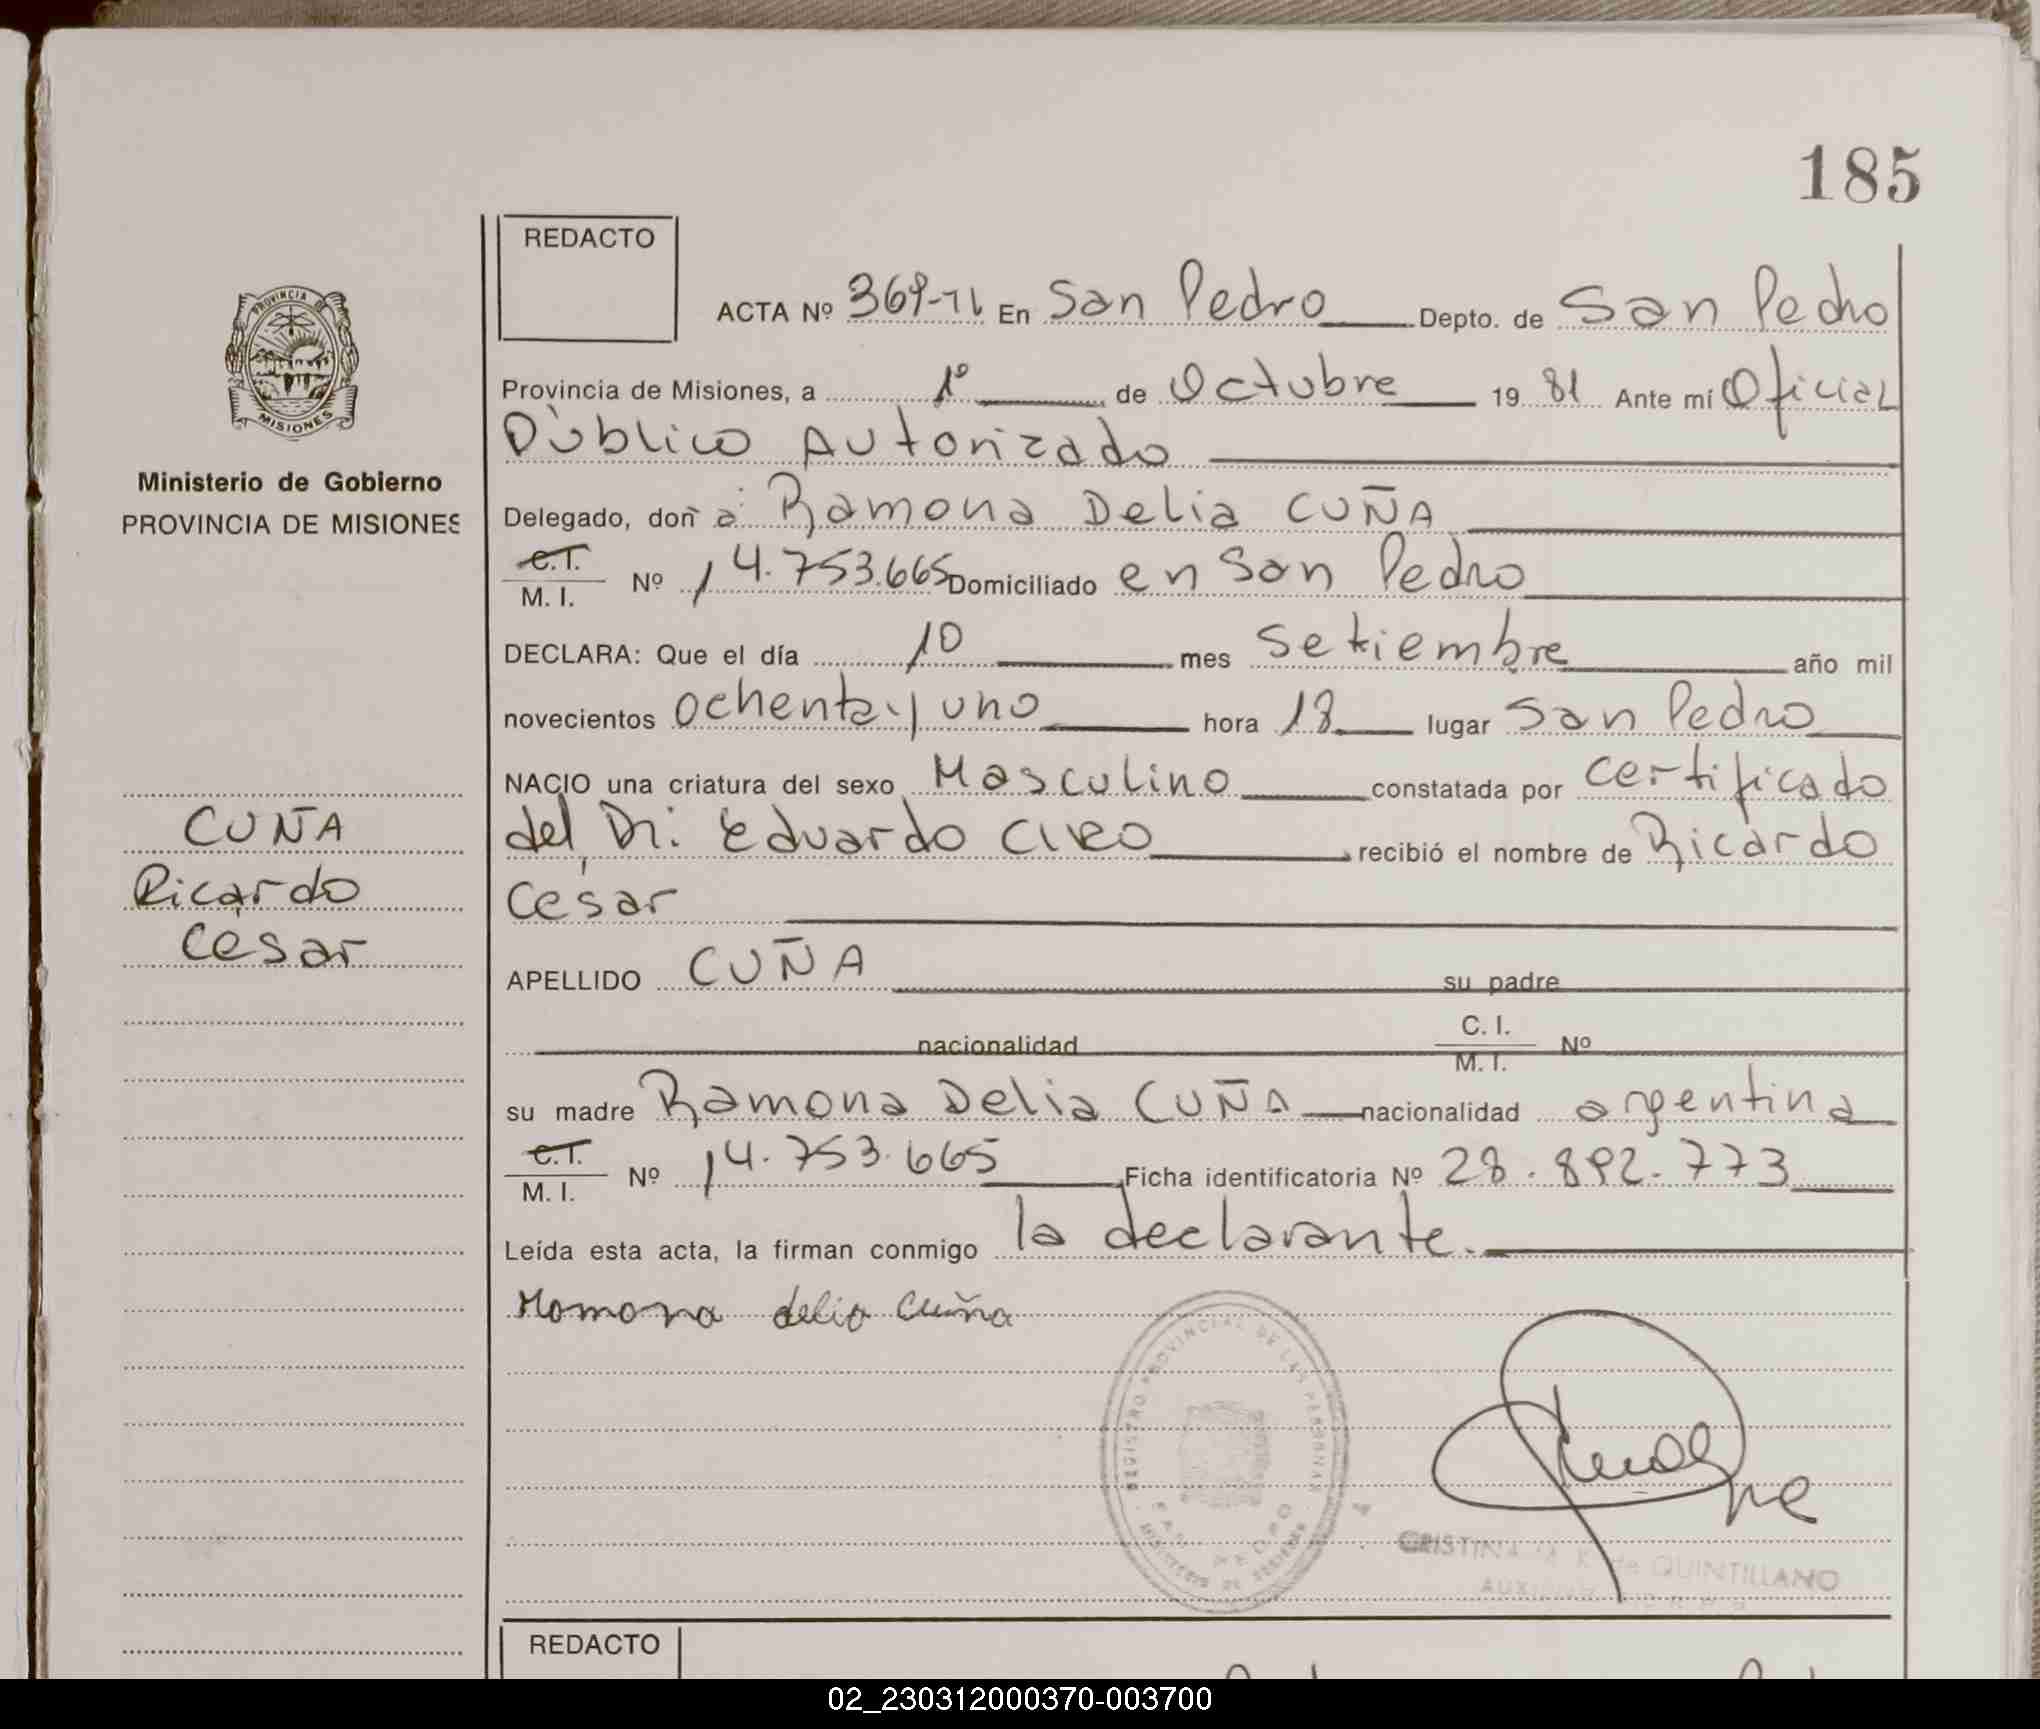 185
REDACTO
ACTA Nº 369-TI En San Pedro Depto. de San Pedro
PROVINCIA DE MISIONES
Provincia de Misiones, a 1º de Octubre 1981 Ante mí Oficial
Público Autorizado
Ministerio de Gobierno
PROVINCIA DE MISIONES
Delegado, doña Ramona Delia CUÑA
C.I. M. I. Nº 14.753.665 Domiciliado en San Pedro
DECLARA: Que el día 10 mes Setiembre año mil
novecientos ochenta y uno hora 18 lugar San Pedro
NACIO una criatura del sexo Masculino constatada por certificado
del Dr. Eduardo recibió el nombre de Ricardo
César
CUÑA
Ricardo
César
APELLIDO CUÑA su padre
nacionalidad C. I. M. I. Nº
su madre Ramona Delia CUÑA nacionalidad argentina
C.I. M. I. Nº 14.753.665 Ficha identificatoria Nº 28.892.773
Leída esta acta, la firman conmigo la declarante.
Romona delia Cuña
REGISTRO PROVINCIAL DE LAS PERSONAS
SAN PEDRO
CRISTINA K. de QUINTILLANO
REDACTO
02_230312000370-003700